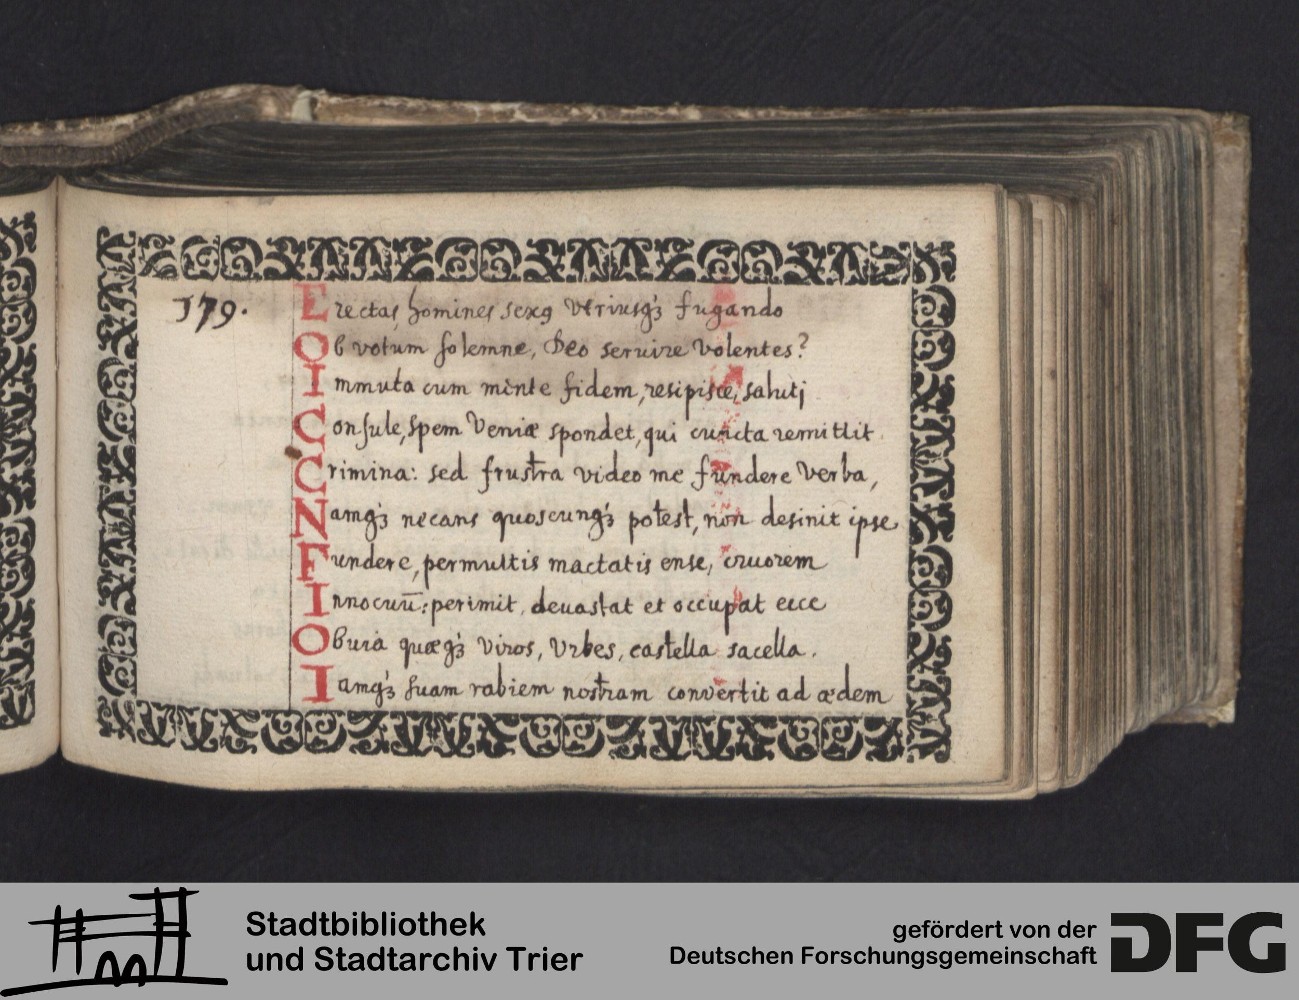 179.
Erectas homines sexq Vtriusqȝ fugando
Ob votum solemne, Deo seruire volentes?
Immuta cum mente fidem, resipisce, saluti
Consule, spem Veniæ spondet, qui cuncta remittit
Crimina: sed frustra video me fundere Verba,
Namqȝ necans quoscunqȝ potest, non desinit ipse
Fundere, permultis mactatis ense, cruorem
Innocuū: perimit, deuastat et occupat ecce
Obuia quæqȝ viros, Vrbes, castella sacella.
Iamqȝ suam rabiem nostram convertit ad ædem
Stadtbibliothek
und Stadtarchiv Trier
gefördert von der
Deutschen Forschungsgemeinschaft
DFG